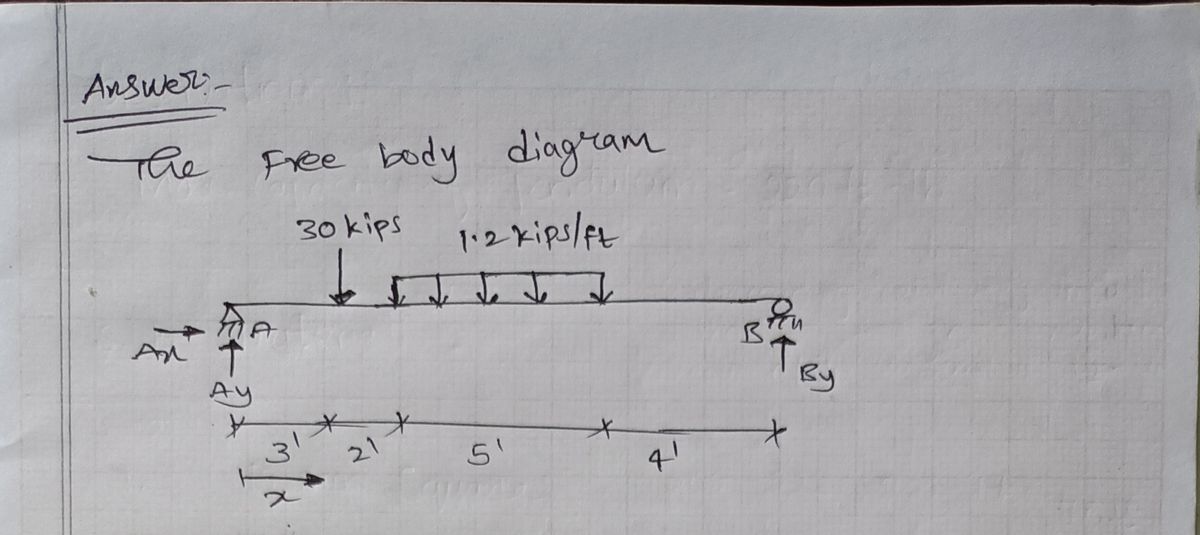 Answer:-
The Free body diagram
30 kips 1.2 kips/ft
A B
Ax
Ay By
3' 2' 5' 4'
x